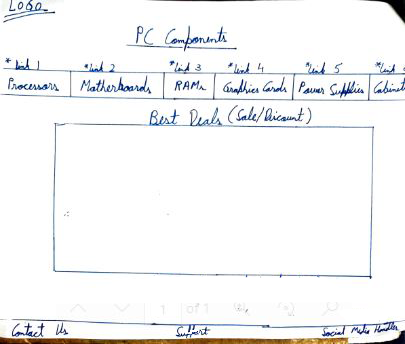 LOGO
PC Components
* Link 1 * Link 2 * Link 3 * Link 4 * Link 5 * Link
Processors Motherboards RAMs Graphics Cards Power Supplies Cabinet
Best Deals (Sale/Discount)
1 of 1
Contact Us Support Social Media Handles